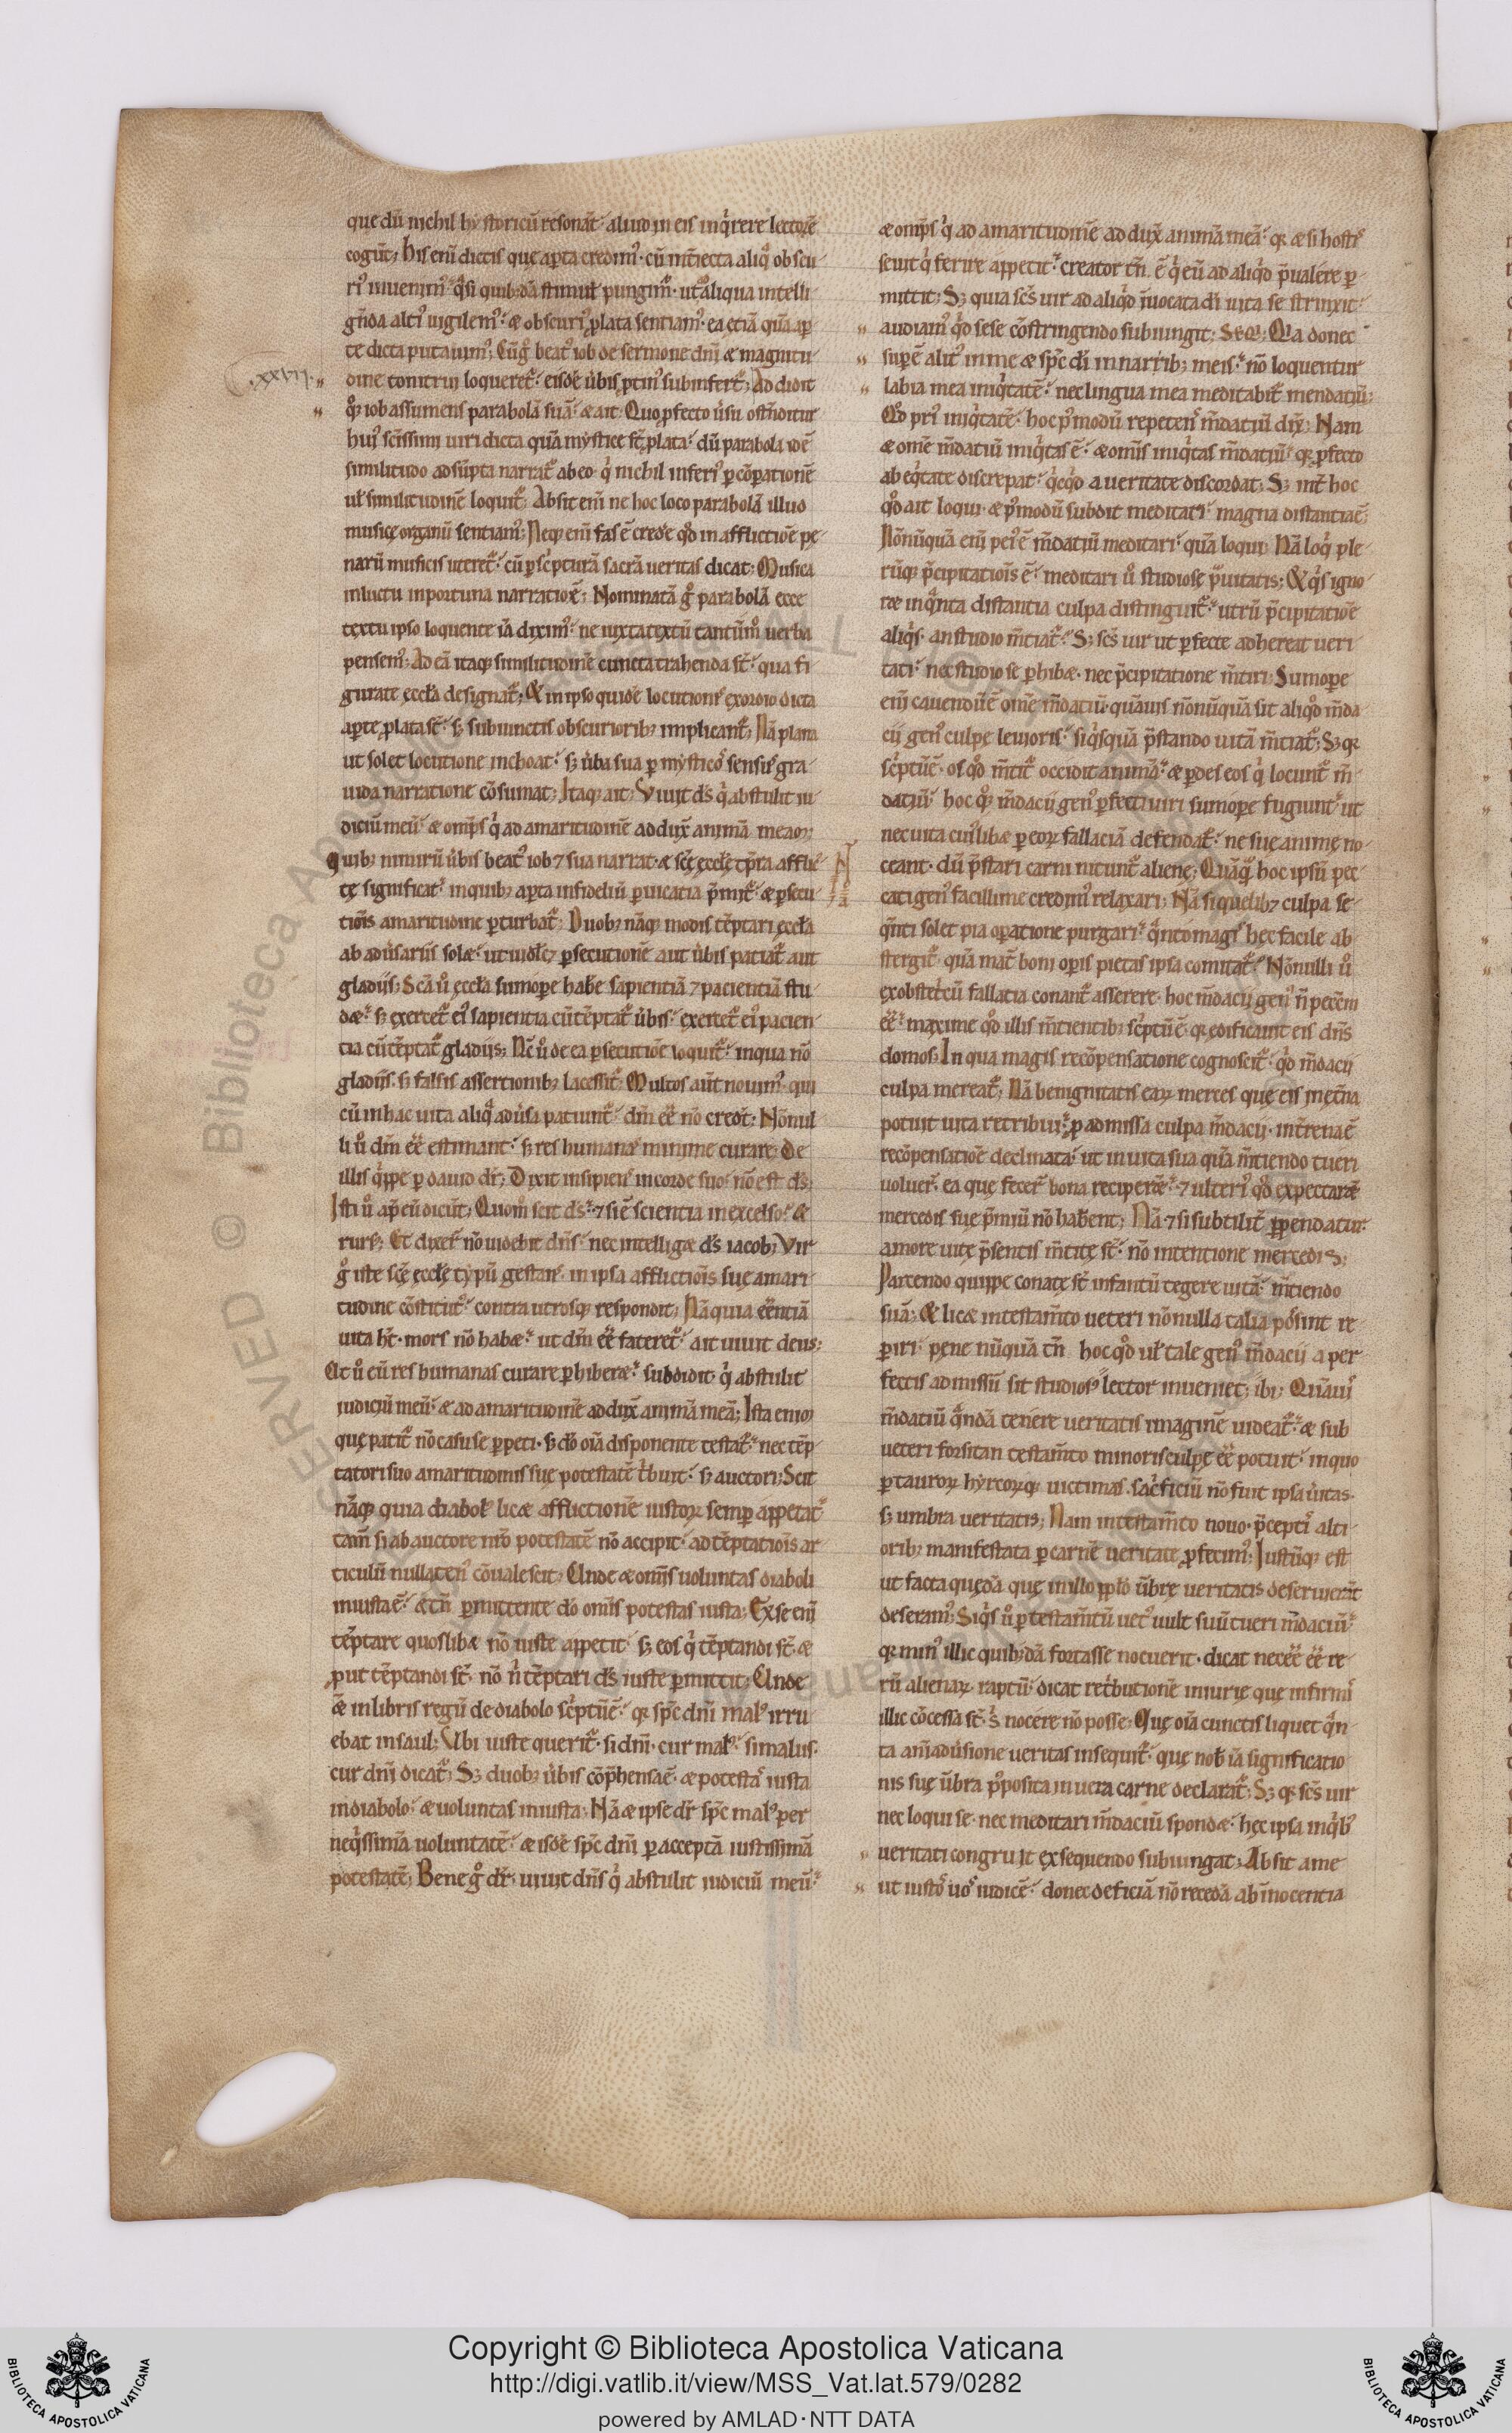 que dū nichil hystoricū resonāt· aliud in eis inq̇rere lectorē
cogūt; His eni dictis quę aꝑta credim᷒· cū int̄iecta aliq̇ obscu
ri᷒ inuenim᷒· q̇si quibꝫdā stimul' pungimur· ut ad aliqua intelli
gn̄da alti᷒ uigilem᷒· & obscuri᷒ ꝓlata sentiam᷒· ea etiā quā aꝑ
te dicta putauim᷒; Cū g̊ beat᷒ iob de sermone dn̄i & magnitu
.xxvii.
dine tonitrui loqueret᷒· eisdē u̇bis ꝓtin᷒ subinfert᷒; Addidit
q̊ꝫ iob assumens parabolā suā· & ait· Quo ꝓfecto u̇su ostn̄ditur
hui᷒ scīssimi uiri dicta quā mystice st̄ ꝓlata· dū parabola idē
similitudo adsūpta narrat᷒ ab eo· q̇ nichil inferi᷒ ꝑ cōꝑationē
ul' similitudinē loquit᷒; Absit em̄ ne hoc loco parabolā illud
musicę organū sentiam᷒; Neqꝫ eni fas ē credere q̊d in afflictiōe pę
narū musicis uteret᷒· cū ꝑ sċpturā sacrā ueritas dicat; Musica
in luctu inportuna narratio ē; Nominatā g̊ parabolā ecce
textu ipso loquente iā dixim᷒· ne iuxta textū tantūm᷒ uerba
pensem᷒; Ad eā itaqꝫ similitudinē cuncta trahenda st̄· qua fi
gurate eccl'a designat᷒; & in ipso quidē locutionis exordio dicta
aꝑte ꝓlata st̄· sꝫ subiunctis obscurioribꝫ implicant᷒; Nā plana
ut solet locutione inchoat· sꝫ u̇ba sua ꝑ mysticos sensus gra
uida narratione cōsumat; Itaqꝫ ait; Viuit ds̄ q̇ abstulit iu
diciū meū· & omp̄s q̇ ad amaritudinē adduxit animā meam;
Quibꝫ nimirū u̇bis beat᷒ iob & sua narrat· & scē eccl'ę tp̄ra afflic
tę significat· in quibꝫ aꝑta infideliū ꝑuicatia p̄mit᷒· & ꝑsecu
tiōis amaritudine ꝑturbat᷒; Duobꝫ nāqꝫ modis tēptari ęccl'a
ab adu̇sariis sol&· ut uidel'cet ꝑsecutionē aut u̇bis patiat᷒ aut
gladiis; Scā u̇ ęccl'a summopere habere sapientiā & pacientiā stu
d&· sꝫ exercet᷒ ei᷒ sapientia cū tēptat᷒ u̇bis· exercet᷒ ei᷒ pacien
tia cū tēptat᷒ gladiis; Nc̄ u̇ de ea ꝑsecutiōe loquit᷒· in qua nō
gladiis· sꝫ falsis assertionibꝫ lacessit᷒; Multos aūt nouim᷒· qui
cū in hac uita aliq̇ adu̇sa patiunt᷒· dm̄ eē nō credūt; Nōnul
li u̇ dm̄ eē estimant· sꝫ res humanas minime curare; De
illis q̇ppe ꝑ dauid dr̄; Dixit insipiens in corde suo· nō est ds̄;
Isti u̇ apd' eū dicūt; Quom̊ scit ds̄· & si ē scientia in excelso· &
rursꝫ; Et dixer̄ nō uidebit dn̄s· nec intellig& ds̄ iacob; Vir
g̊ iste scē ęccl'ę typū gestans· in ipsa afflictiōis suę amari
tudine cōstitut᷒· contra utrosqꝫ respondit; Nā quia eēntiā
uita ht̄· mors nō hab&· ut dm̄ eē fateret᷒· ait uiuit deus;
Et u̇ eū res humanas curare ꝑhiber&· subdidit· q̇ abstulit
iudiciū meū· & ad amaritudinē adduxit animā meā; Ista enim
quę patit᷒ nō casu se ꝑpeti· sꝫ dō oīa disponente testat᷒· nec tēp
tatori suo amaritudinis suę potestatē tͥbuit· sꝫ auctori; Scit
nāqꝫ quia diabol' lic& afflictionē iustorꝫ semꝑ appetat·
tam̄ si ab auctore nr̄o potestatē nō accipit· ad tēptatiōis ar
ticulū nullaten᷒ cōualescit; Unde & omīs uoluntas diaboli
iniusta ē· & tn̄ ꝑmittente dō omīs potestas iusta; Ex se eni
tēptare quoslib& nō iuste appetit· sꝫ eos q̇ tēptandi st̄· &
ꝓut tēptandi st̄· nō n̄ tēptari ds̄ iuste ꝑmittit; Unde
&iā in libris regū de diabolo sċptū ē· qꝫ spc̄ dn̄i mal᷒ irru
ebat in saul; Ubi iuste querit᷒· si dn̄i· cur mal᷒· si malus·
cur dn̄i dicat᷒; Sꝫ duobꝫ u̇bis cōp̄hensa ē· & potestas iusta
in diabolo· & uoluntas iniusta; Nā & ipse dr̄ spc̄ mal᷒ per
neq̇ssimā uoluntatē· & isdē spc̄ dn̄i ꝑ acceptā iustissimā
potestatē; Bene g̊ dr̄· uiuit dn̄s q̇ abstulit iudiciū meū·
& omp̄s q̇ ad amaritudinē adduxit animā meā· qꝫ & si hostis
seuit q̇ ferire appetit· creator tn̄ ē q̇ eū ad aliq̇d p̄ualere ꝑ
mittit; Sꝫ quia scs̄ uir ad aliq̇d inuocata di uita se strinxit·
audiam᷒ q̇d sese cōstringendo subiungit; Seqr; Quia donec
suꝑē alit᷒ in me & spc̄ di in naribꝫ meis· nō loquentur
labia mea iniq̇tatē· nec lingua mea meditabit᷒ mendatiū;
Q̊d pri᷒ iniq̇tatē· hoc p᷒modū repetens m̄datiū dixit; Nam
& omē m̄datiū iniq̇tas ē· & omīs iniq̇tas m̄datiū· qꝫ ꝓfecto
ab eq̇tate discrepat· q̇cq̇d a ueritate discordat; Sꝫ int̄ hoc
q̊d ait loqui· & p᷒modū subdit meditari· magna distantia ē;
Nōnūquā eni pei᷒ ē m̄datiū meditari· quā loqui; Nā loq̇ ple
rūqꝫ p̄cipitatiōis ē· meditari u̇ studiose prauitatis; & q̇s igno
ret in q̇nta distantia culpa distinguit᷒· utrū p̄cipitatiōe
aliq̇s· an studio m̄tiat᷒; Sꝫ scs̄ uir ut ꝑfecte adhereat ueri
tati· nec studio se ꝑhib&· nec p̄cipitatione m̄tiri; Sumoꝑe
eni cauendū ē omē m̄datiū· quāuis nōnūquā sit aliq̊d m̄da
cii gen᷒ culpę leuioris· si q̇squā p̄stando uitā m̄tiat᷒; Sꝫ qꝫ
sċptū ē· os q̊d m̄tit᷒ occidit animā· & ꝑdes eos q̇ locunt᷒ m̄
datiū· hoc q̊ꝫ m̄dacii gen᷒ ꝑfecti uiri sumoꝑe fugiunt· ut
nec uita cui᷒lib& ꝑ eorꝫ fallaciā defendat᷒· ne suę animę no
ceant· dū p̄stari carni nitunt᷒ alienę; Quāq̇ hoc ipsū pec
cati gen᷒ facillime credim᷒ relaxari; Nā si quelibꝫ culpa se
q̇nti solet pia oꝑatione purgari· q̇nto magis hęc facile ab
stergit᷒· quā mat̄ boni oꝑis pietas ipsa comitat᷒; Nōnulli u̇
ex obstetͥcū fallatia conant᷒ asserere· hoc m̄dacii gen᷒ n̄ peccm
eē· maxime q̊d illis m̄tientibꝫ sċptū ē· qꝫ edificauit eis dn̄s
domos; In qua magis recōpensatione cognoscit᷒· q̇d m̄dacii
culpa mereat᷒; Nā benignitatis earꝫ merces quę eis in ęt̄na
potuit uita retribui· ꝑ admissa culpa m̄dacii· in t̄rena ē
recōpensatiōe declinata· ut in uita sua quā m̄tiendo tueri
uoluer̄· ea quę fecer̄ bona reciper&· & ulteri᷒ q̊d expectar&
mercedis suę p̄miū nō haberent; Nā & si subtilit᷒ ꝑpendatur·
amore uitę p̄sentis m̄titę st̄· nō intentione mercedis;
Parcendo quippe conatę st̄ infantū tegere uitā· m̄tiendo
suā; & lic& in testam̄to ueteri nōnulla talia possint re
ꝑiri· pęne nūquā tn̄ hoc q̊d ul' tale gen᷒ m̄dacii a per
fectis admissū sit studios᷒ lector inueniet ibi; Quāuis
m̄datiū q̇ndā tenere ueritatis imaginē uideat᷒· & sub
ueteri forsitan testam̄to minoris culpę eē potuit· in quo
ꝑ taurorꝫ hyrcorꝫqꝫ uictimas· sac̄ficiū nō fuit ipsa u̇itas·
sꝫ umbra ueritatis; Nam in testam̄to nouo· p̄ceptis alti
oribꝫ manifestata ꝑ carnē ueritate ꝓfecim᷒; Iustūqꝫ est
ut facta quędā quę in illo ppl'o ūbrę ueritatis deseruierāt
deseram᷒; Siq̇s u̇ ꝑ testam̄tū uet᷒ uult suū tueri m̄daciū·
qꝫ min᷒ illic quibꝫdā fortasse nocuerit· dicat necē eē re
rū alienarꝫ raptū· dicat retͥbutionē iniurię quę infirmis
illic cōcessa st̄· s᷒ nocere nō posse; Quę oīa cunctis liquet q̇n
ta aīaduu̇sione ueritas insequit᷒· quę nob̄ iā significatio
nis suę ūbra p᷒posita in uera carne declarat᷒; Sꝫ qꝫ scs̄ uir
nec loqui se· nec meditari m̄daciū spond&· hęc ipsa in q̇bꝫ
ueritati congruit exsequendo subiungat; Absit a me
ut iustos uos iudicē· donec deficiā nō recedā ab īnocentia
Copyright © Biblioteca Apostolica Vaticana
http://digi.vatlib.it/view/MSS_Vat.lat.579/0282
powered by AMLAD·NTT DATA
BIBLIOTECA APOSTOLICA VATICANA
BIBLIOTECA APOSTOLICA VATICANA